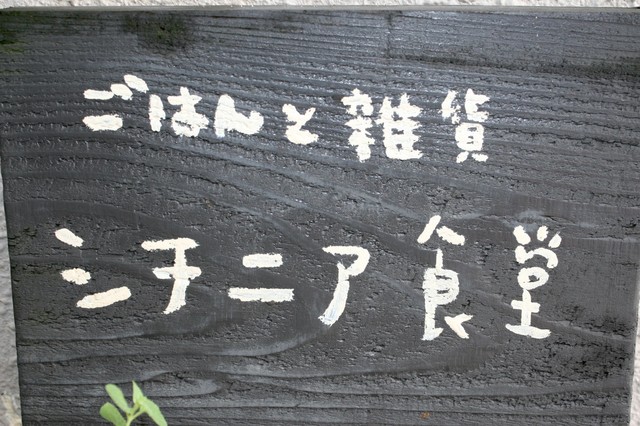 ごはんと雑貨
シチニア食堂